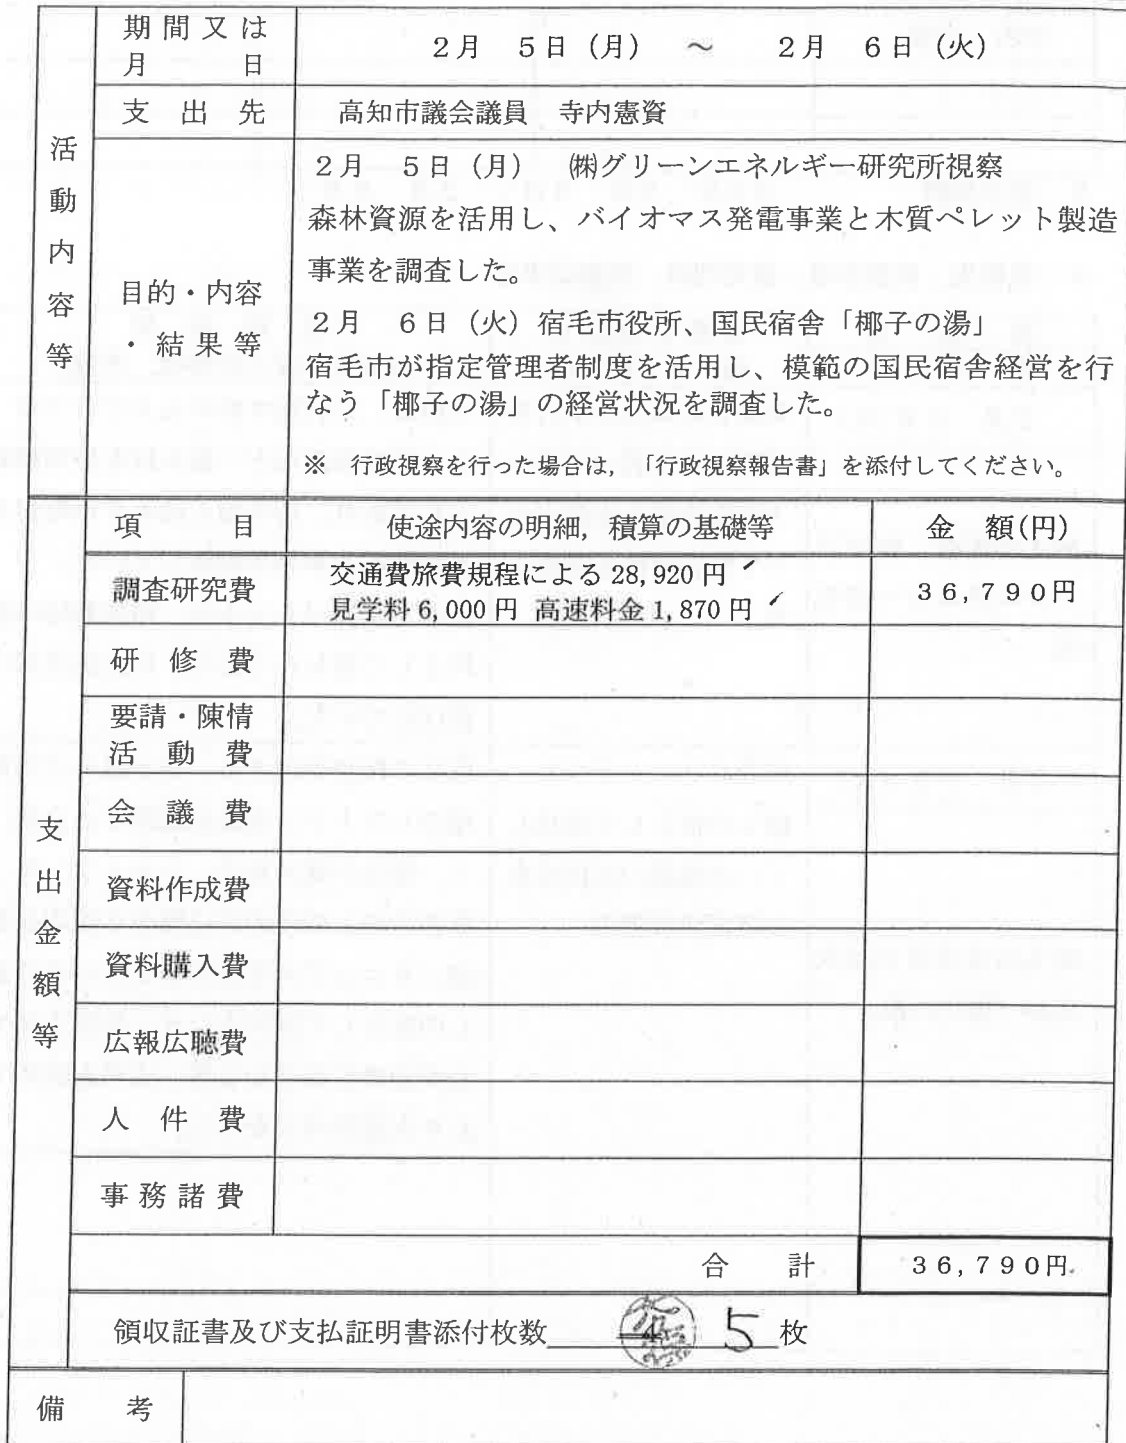 期間又は
月　　日
２月　５日（月）　～　２月　６日（火）
支　出　先
高知市議会議員　寺内憲資
活動内容等
目的・内容
・結果等
２月　５日（月）　㈱グリーンエネルギー研究所視察
森林資源を活用し、バイオマス発電事業と木質ペレット製造
事業を調査した。
２月　６日（火）宿毛市役所、国民宿舎「椰子の湯」
宿毛市が指定管理者制度を活用し、模範の国民宿舎経営を行
なう「椰子の湯」の経営状況を調査した。
※　行政視察を行った場合は，「行政視察報告書」を添付してください。
支出金額等
項　　目　使途内容の明細，積算の基礎等　金　額(円)
調査研究費
交通費旅費規程による 28,920 円
見学料 6,000 円　高速料金 1,870 円
３６,７９０円
研　修　費
要請・陳情
活　動　費
会　議　費
資料作成費
資料購入費
広報広聴費
人　件　費
事務諸費
合　　計　３６,７９０円
領収証書及び支払証明書添付枚数　5 枚
備　　考